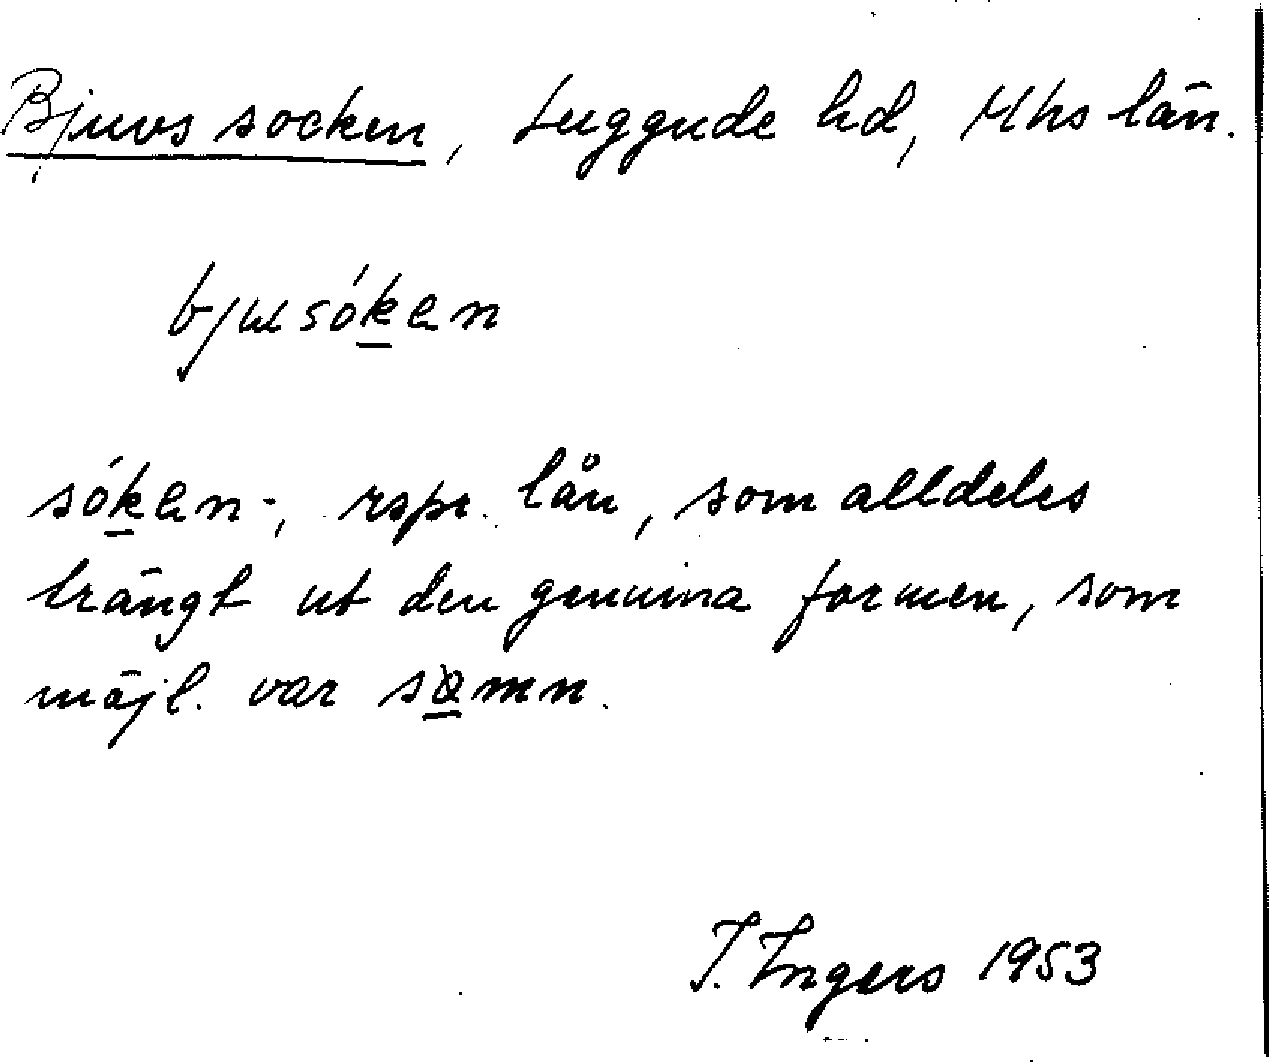 Bjuvs socken, Luggude hd, Mhs län.
bjusóken
sóken-, rspr. lån, som alldeles
trängt ut den genuina formen, som
möjl. var somn.
I. Ingers 1953